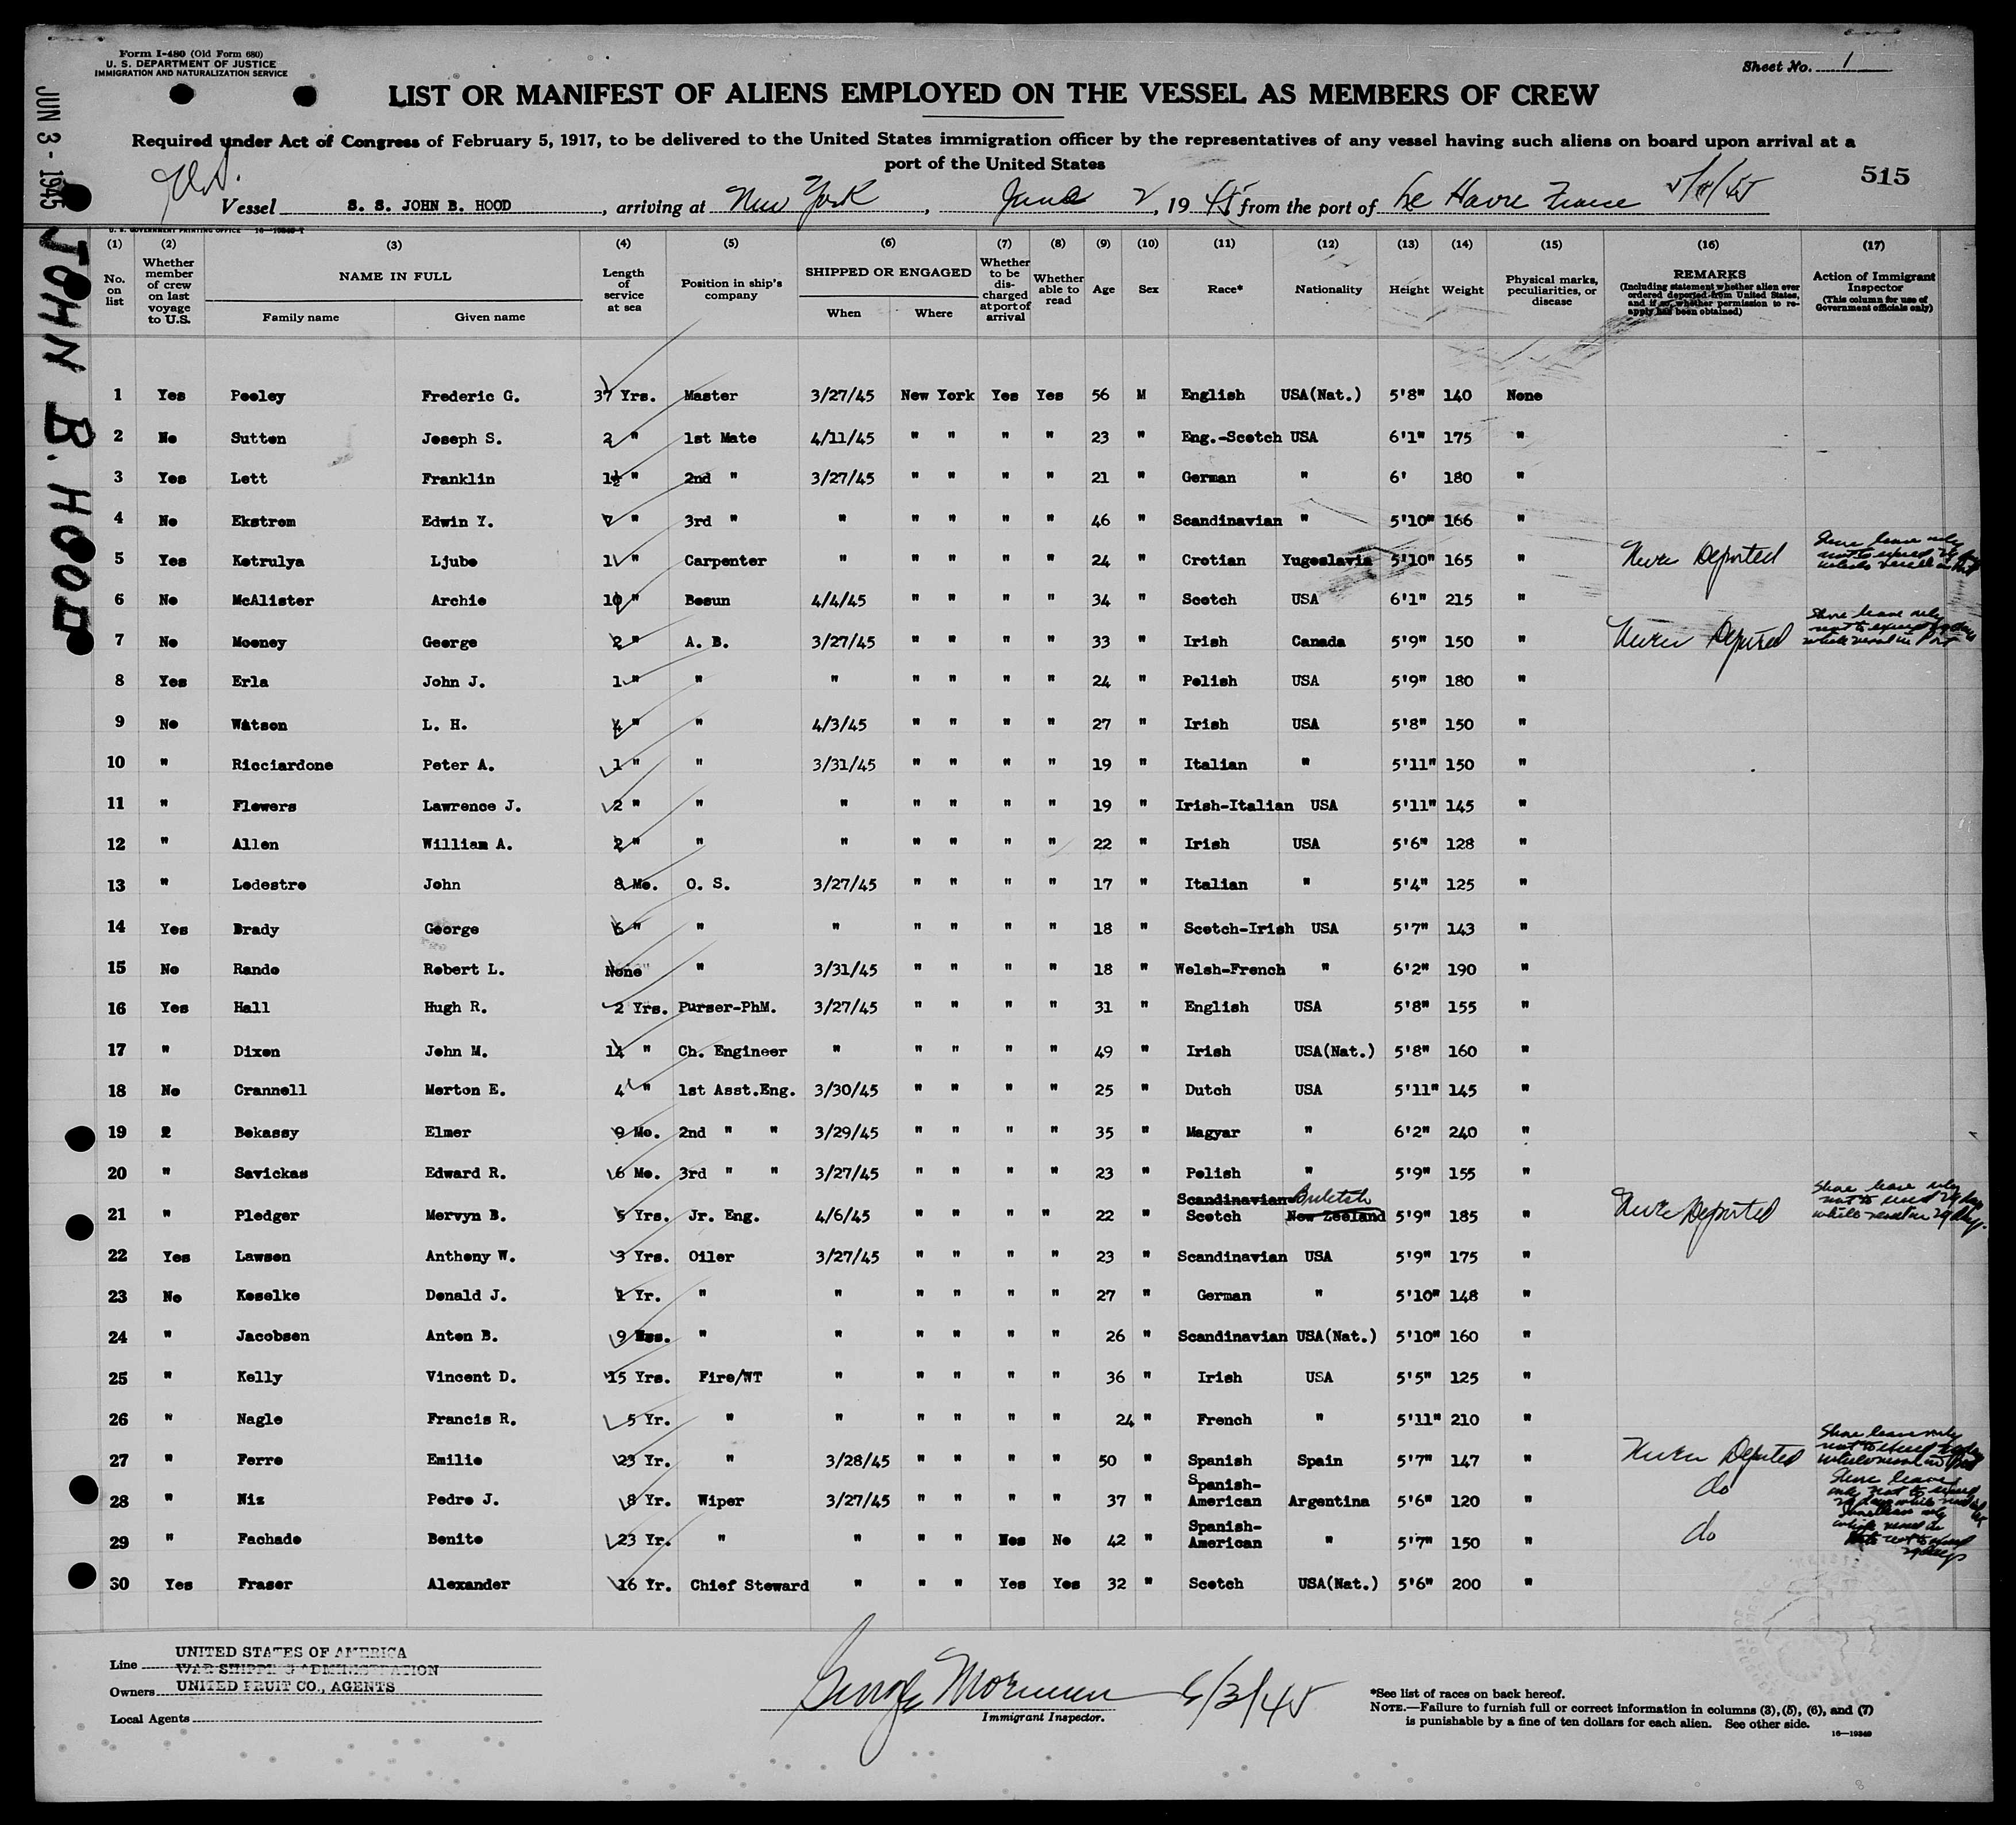 Form I-480 (Old Form 680)
U. S. DEPARTMENT OF JUSTICE
IMMIGRATION AND NATURALIZATION SERVICE
Sheet No. 1
JUN 3 - 1945
JOHN B. HOOD
LIST OR MANIFEST OF ALIENS EMPLOYED ON THE VESSEL AS MEMBERS OF CREW
Required under Act of Congress of February 5, 1917, to be delivered to the United States immigration officer by the representatives of any vessel having such aliens on board upon arrival at a
port of the United States
515
Vessel S. S. JOHN B. HOOD, arriving at New York, June 2, 1945 from the port of Le Havre France
U. S. GOVERNMENT PRINTING OFFICE
(1) (2) (3) (4) (5) (6) (7) (8) (9) (10) (11) (12) (13) (14) (15) (16) (17)
No. on list
Whether member of crew on last voyage to U.S.
NAME IN FULL
Family name Given name
Length of service at sea
Position in ship's company
SHIPPED OR ENGAGED
When Where
Whether to be discharged at port of arrival
Whether able to read
Age
Sex
Race*
Nationality
Height
Weight
Physical marks, peculiarities, or disease
REMARKS
(Including statement whether alien ever ordered deported from United States, and if so, whether permission to reapply has been obtained)
Action of Immigrant Inspector
(This column for use of Government officials only)
1 Yes Peeley Frederic G. 37 Yrs. Master 3/27/45 New York Yes Yes 56 M English USA(Nat.) 5'8" 140 None
2 No Sutton Joseph S. 2 " 1st Mate 4/11/45 " " " " 23 " Eng.-Scotch USA 6'1" 175 "
3 Yes Lett Franklin 1½ " 2nd " 3/27/45 " " " " 21 " German " 6' 180 "
4 No Ekstrom Edwin Y. 7 " 3rd " " " " " " 46 " Scandinavian " 5'10" 166 "
5 Yes Ketrulya Ljube 1 " Carpenter " " " " " 24 " Crotian Yugoslavia 5'10" 165 " Never Deported Shore leave only not to exceed 29 days while vessel in Port
6 No McAlister Archie 10 " Bosun 4/4/45 " " " " 34 " Scotch USA 6'1" 215 "
7 No Mooney George 2 " A. B. 3/27/45 " " " " 33 " Irish Canada 5'9" 150 " Never Deported Shore leave only not to exceed 29 days while vessel in Port
8 Yes Erla John J. 1 " " " " " " " 24 " Polish USA 5'9" 180 "
9 No Watson L. H. 4 " " 4/3/45 " " " " 27 " Irish USA 5'8" 150 "
10 " Ricciardone Peter A. 1 " " 3/31/45 " " " " 19 " Italian " 5'11" 150 "
11 " Flowers Lawrence J. 2 " " " " " " " 19 " Irish-Italian USA 5'11" 145 "
12 " Allen William A. 2 " " " " " " " 22 " Irish USA 5'6" 128 "
13 " Ledestro John 8 Mo. O. S. 3/27/45 " " " " 17 " Italian " 5'4" 125 "
14 Yes Brady George 6 " " " " " " " 18 " Scotch-Irish USA 5'7" 143 "
15 No Rando Robert L. None " 3/31/45 " " " " 18 " Welsh-French " 6'2" 190 "
16 Yes Hall Hugh R. 2 Yrs. Purser-PhM. 3/27/45 " " " " 31 " English USA 5'8" 155 "
17 " Dixon John M. 14 " Ch. Engineer " " " " " 49 " Irish USA(Nat.) 5'8" 160 "
18 No Crannell Merton E. 4 " 1st Asst.Eng. 3/30/45 " " " " 25 " Dutch USA 5'11" 145 "
19 " Bekassy Elmer 9 Mo. 2nd " " 3/29/45 " " " " 35 " Magyar " 6'2" 240 "
20 " Savickas Edward R. 6 Mo. 3rd " " 3/27/45 " " " " 23 " Polish " 5'9" 155 "
21 " Pledger Mervyn B. 5 Yrs. Jr. Eng. 4/6/45 " " " " 22 " Scandinavian Scotch British New Zeeland 5'9" 185 " Never Deported Shore leave only not to exceed 29 days
22 Yes Lawsen Antheny W. 3 Yrs. Oiler 3/27/45 " " " " 23 " Scandinavian USA 5'9" 175 "
23 No Keselke Donald J. 1 Yr. " " " " " " 27 " German " 5'10" 148 "
24 " Jacobsen Anten B. 9 " " " " " " 26 " Scandinavian USA(Nat.) 5'10" 160 "
25 " Kelly Vincent D. 15 Yrs. Fire/WT " " " " " 36 " Irish USA 5'5" 125 "
26 " Nagle Francis R. 5 Yr. " " " " " " 24 " French " 5'11" 210 "
27 " Ferro Emilie 23 Yr. " 3/28/45 " " " " 50 " Spanish Spain 5'7" 147 " Never Deported Shore leave only
28 " Niz Pedro J. 8 Yr. Wiper 3/27/45 " " " " 37 " Spanish-American Argentina 5'6" 120 " do Shore leave only not to exceed
29 " Fachado Benito 23 Yr. " " " " No 42 " Spanish-American " 5'7" 150 " do
30 Yes Fraser Alexander 16 Yr. Chief Steward " " " Yes Yes 32 " Scotch USA(Nat.) 5'6" 200 "
Line UNITED STATES OF AMERICA
WAR SHIPPING ADMINISTRATION
Owners UNITED FRUIT CO., AGENTS
Local Agents
George 6/3/45
Immigrant Inspector.
*See list of races on back hereof.
NOTE.—Failure to furnish full or correct information in columns (3), (5), (6), and (7)
is punishable by a fine of ten dollars for each alien. See other side.
16—19349